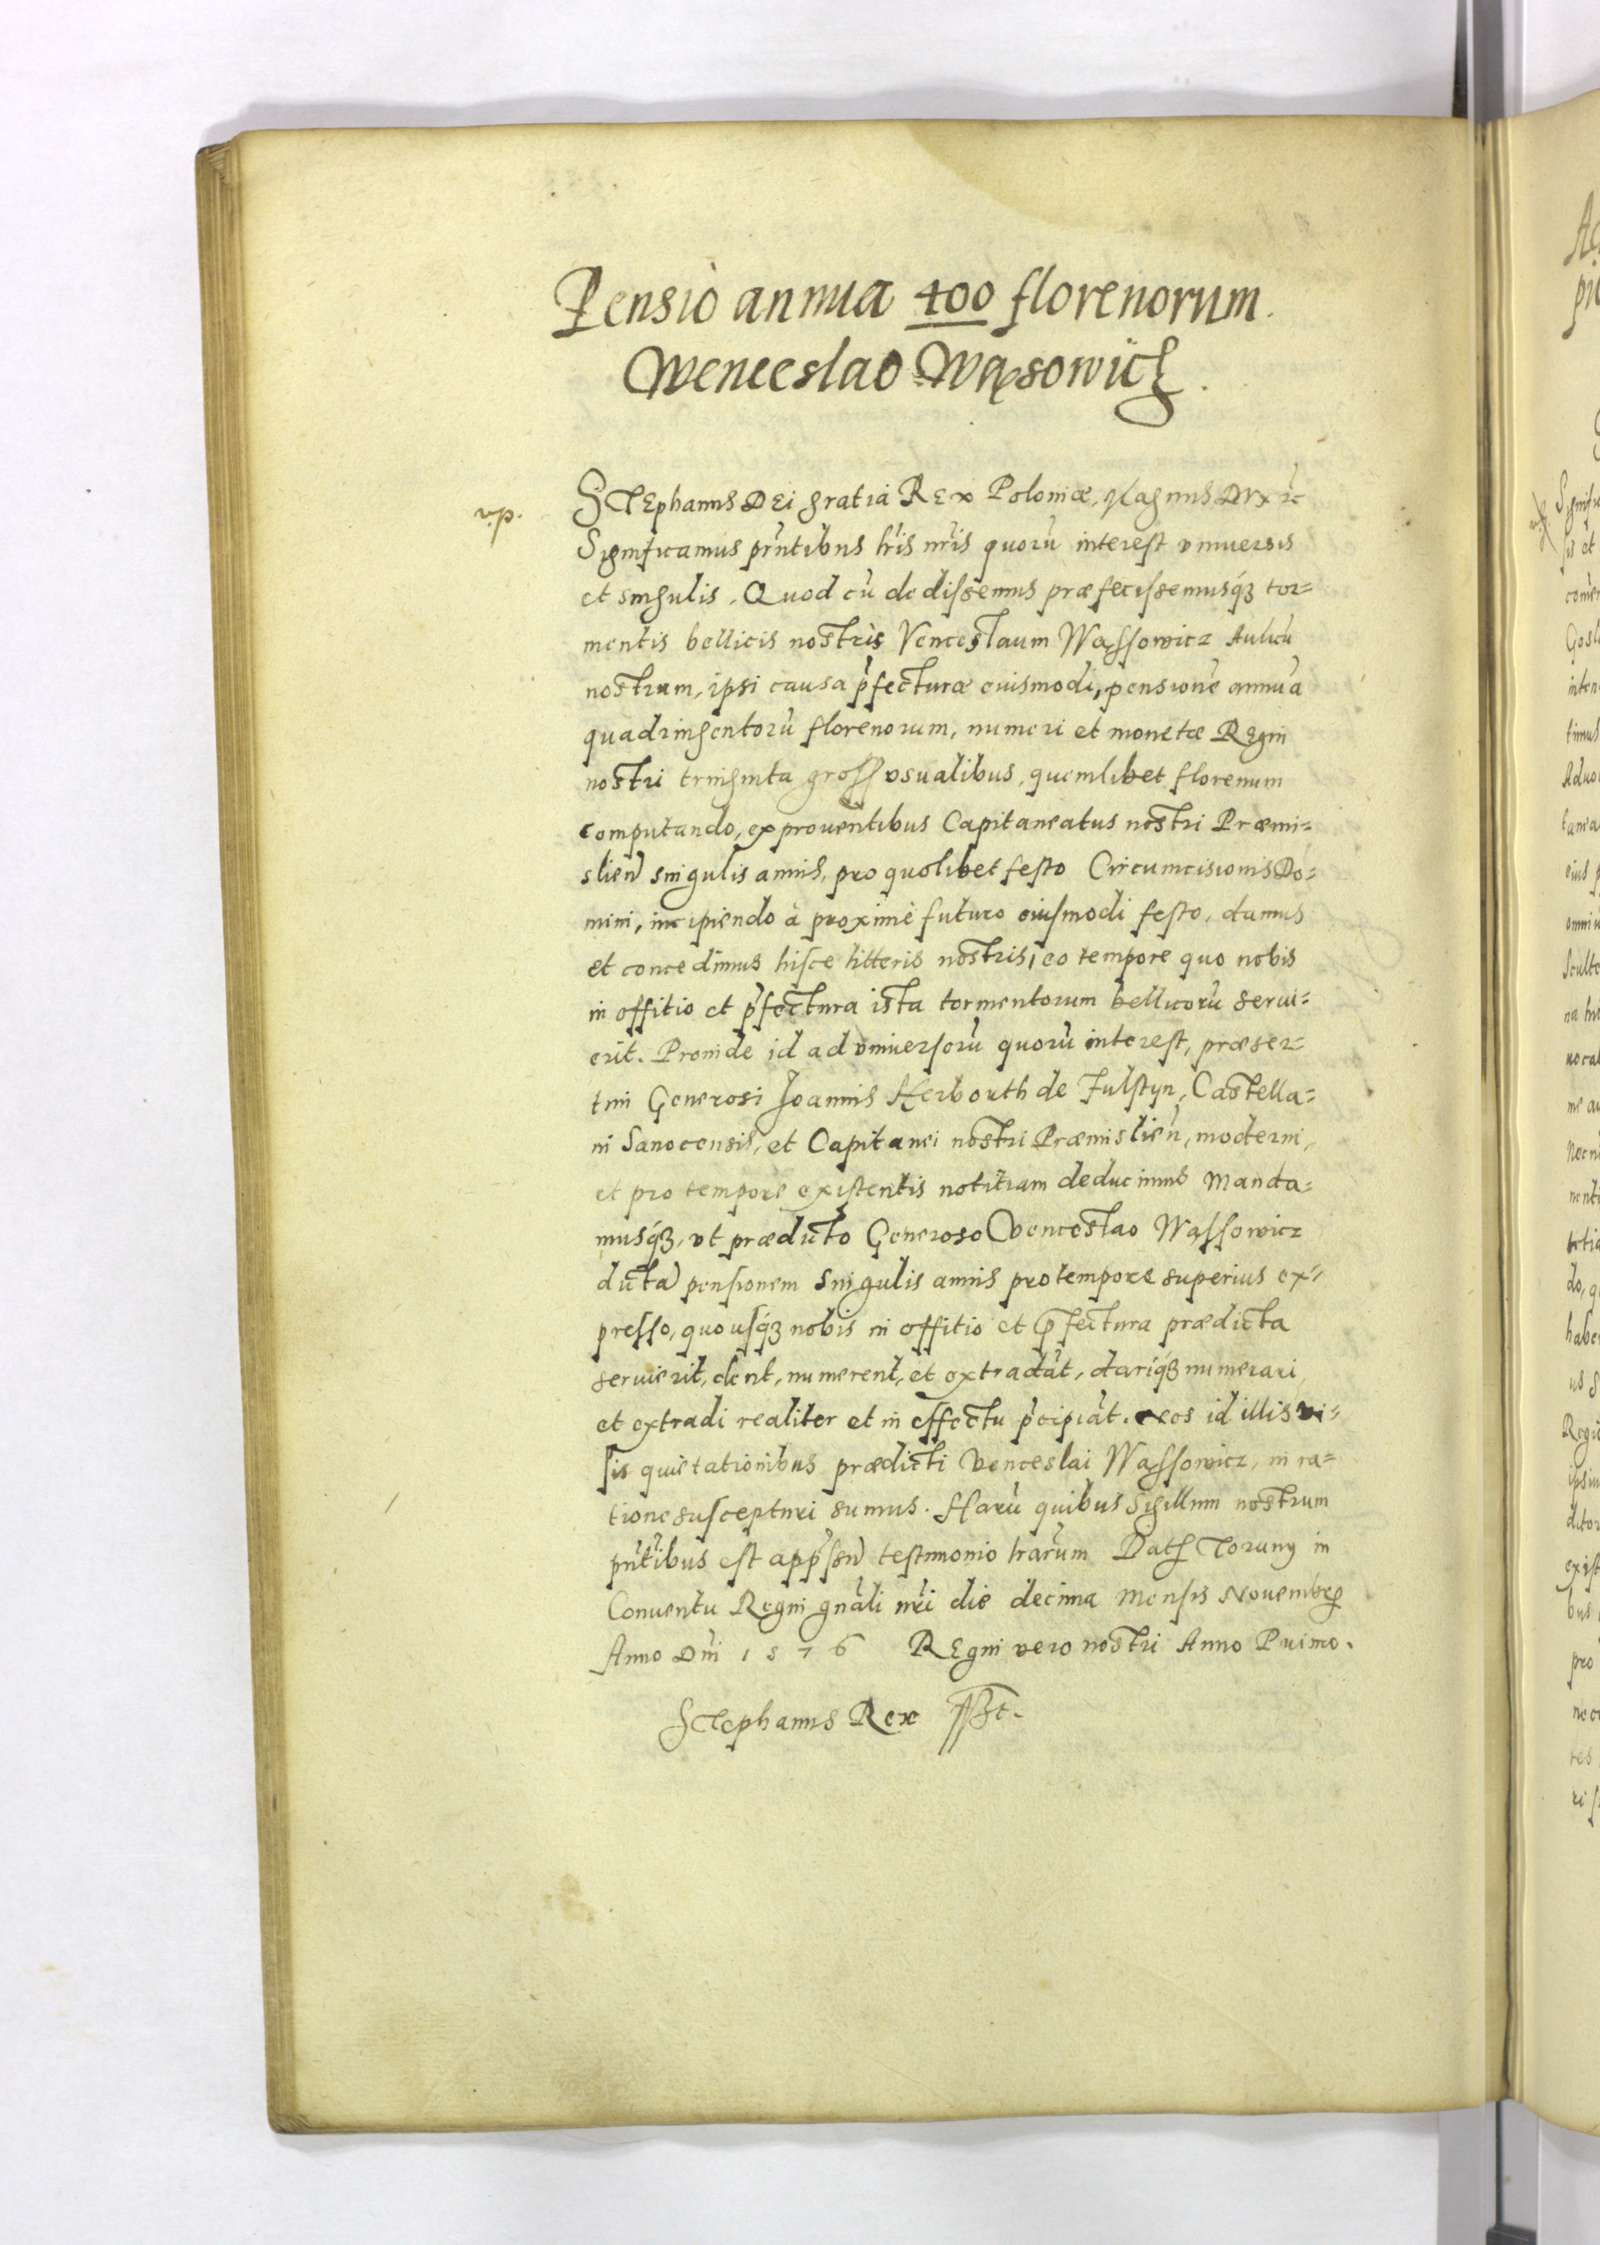 Pensio annua 400 florenorum.
Wenceslao Wąsowicz.
v.p.
Stephanus Dei gratia Rex Poloniæ, Magnus Dux etc
Significamus pr̃ntibus lr̃is nr̃is quorũ interest vniuersis
et singulis. Quod cũ dedissemus præfecissemusq́ꝫ tor=
mentis bellicis nostris Venceslaum Wąssowicz Aulicũ
nostrum, ipsi causa p̃fecturæ eiusmodi, pensionẽ annuã
quadringentorũ florenorum, numeri et monetæ Regni
nostri triginta gross vsualibus, quemlibet florenum
computando, ex prouentibus Capitaneatus nostri Præmi=
slieñ singulis annis, pro quolibet festo Circumcisionis Do=
mini, incipiendo à proximè futuro eiusmodi festo, damus
et concedimus hisce litteris nostris, eo tempore quo nobis
in offitio et p̃fectura ista tormentorum bellicorũ serui=
erit. Proinde id ad vniuersorũ quorũ interest, præser=
tim Generosi Joannis Herborth de Fulstyn, Castella=
ni Sanocensis, et Capitanei nostri Præmislieñ, moderni,
et pro tempore existentis notitiam deducimus Manda=
musq́ꝫ, vt prædicto Generoso Venceslao Wąssowicz
dictã pensionem singulis annis pro tempore superius ex=
presso, quousq́ꝫ nobis in offitio et p̃fectura prædicta
seruierit, dent, numerent, et extradãt, dariq́ꝫ numerari,
et extradi realiter et in effectu p̃cipiãt. Nos id illis vi=
sis quietationibus prædicti Venceslai Wąssowicz, in ra=
tione suscepturi sumus. Harũ quibus Sigillum nostrum
pñtibus est app̃ssũ testimonio lr̃arum Datꝭ Toruny in
Conuentu Regni gñali nr̃i die decima Mensis Nouembrꝭ
Anno Dñi 1576 Regni vero nostri Anno Primo.
Stephanus Rex sst.